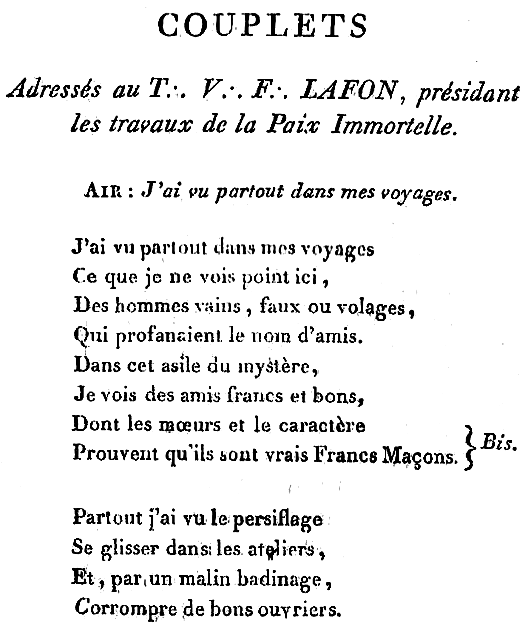 COUPLETS
Adressés au T∴ V∴ F∴ LAFON, présidant
les travaux de la Paix Immortelle.
AIR : J'ai vu partout dans mes voyages.
J'ai vu partout dans mes voyages
Ce que je ne vois point ici,
Des hommes vains, faux ou volages,
Qui profanaient le nom d'amis.
Dans cet asile du mystère,
Je vois des amis francs et bons,
Dont les mœurs et le caractère
Prouvent qu'ils sont vrais Francs Maçons. } Bis.
Partout j'ai vu le persiflage
Se glisser dans les ateliers,
Et, par un malin badinage,
Corrompre de bons ouvriers.